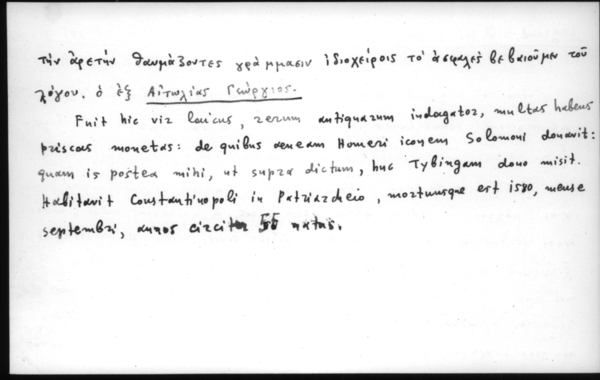 τὴν ἀρετὴν θαυμάζοντες γράμμασιν ἰδιοχείροις τὸ ἀσφαλὲς βεβαιοῦμεν τοῦ
λόγου. ὁ ἐξ Αἰτωλίας Γεώργιος.
Fuit hic vir laicus, rerum antiquarum indagator, multas habens
priscas monetas: de quibus aeneam Homeri iconem Solomoni donavit:
quam is postea mihi, ut supra dictum, huc Tybingam dono misit.
Habitavit Constantinopoli in Patriarcheio, mortuusque est 1580, mense
septembri, annos circiter 55 natus.